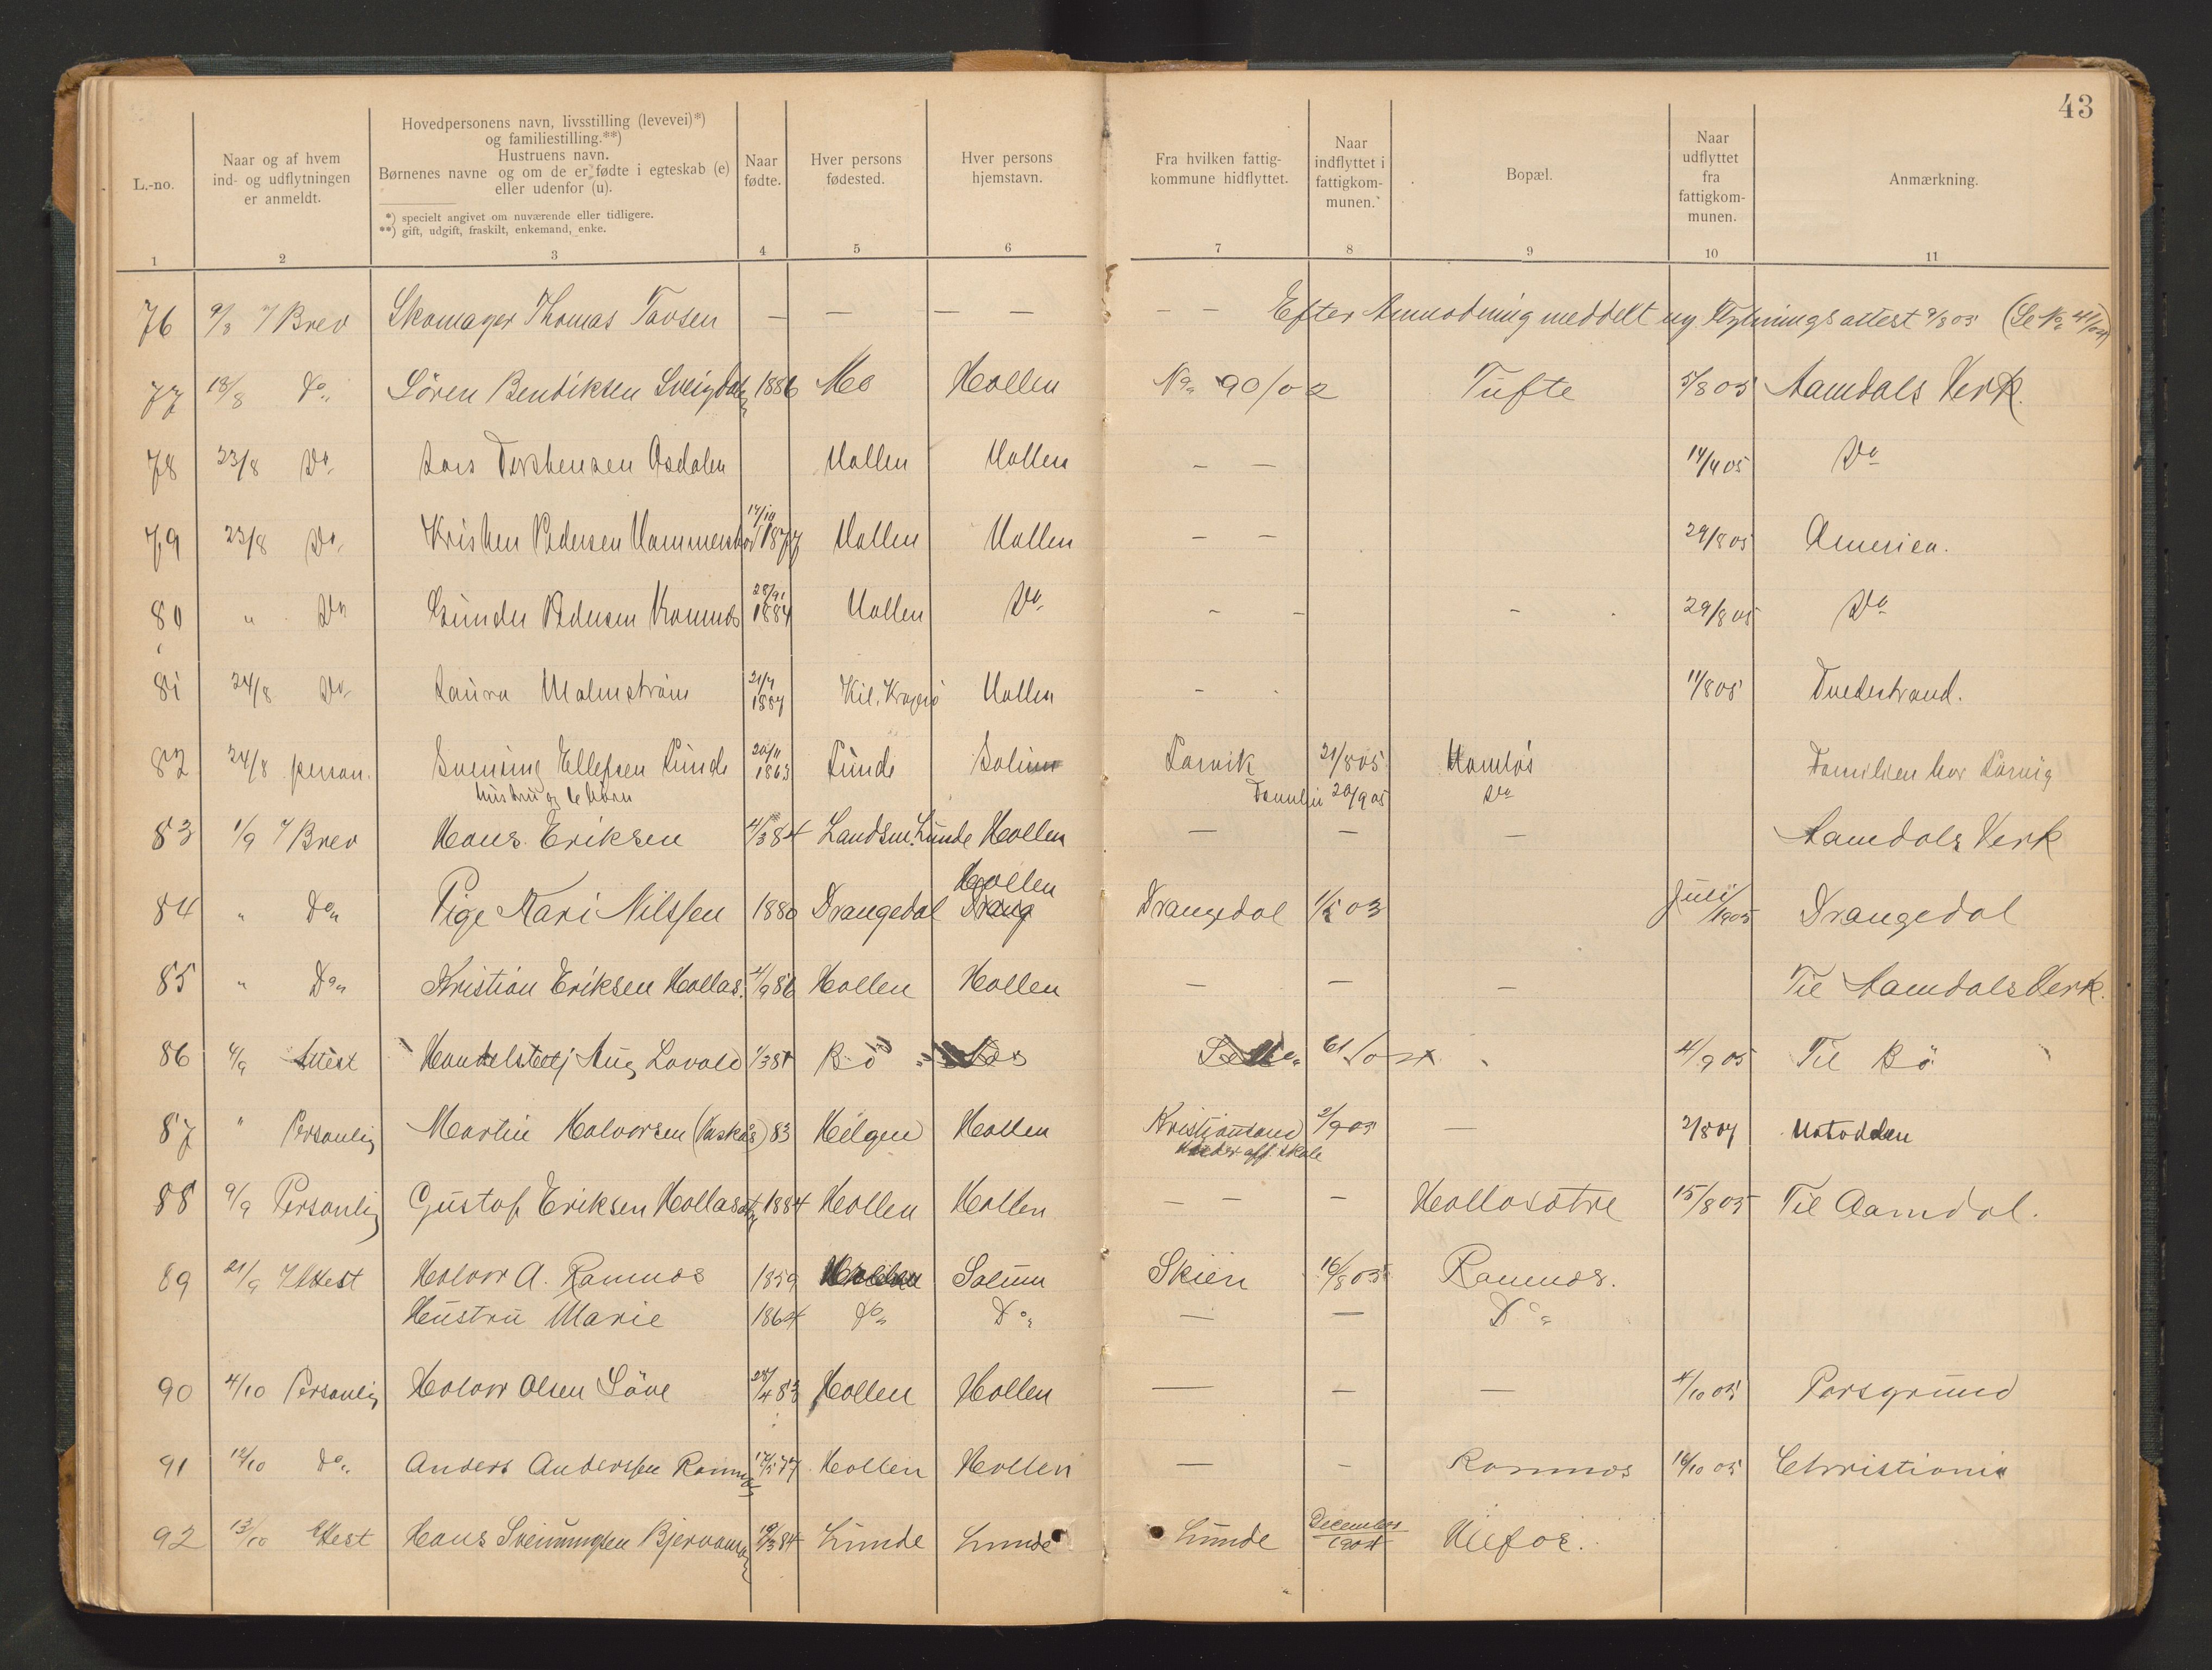 43
L.-no.
Naar og af hvem ind- og udflytningen er anmeldt.
Hovedpersonens navn, livsstilling (levevei)*) og familiestilling.**)
Hustruens navn.
Børnenes navne og om de er fødte i egteskab (e) eller udenfor (u).
*) specielt angivet om nuværende eller tidligere.
**) gift, udgift, fraskilt, enkemand, enke.
Naar fødte.
Hver persons fødested.
Hver persons hjemstavn.
Fra hvilken fattigkommune hidflyttet.
Naar indflyttet i fattigkommunen.
Bopæl.
Naar udflyttet fra fattigkommunen.
Anmærkning.
1 2 3 4 5 6 7 8 9 10 11
76 9/8 Brev Skomager Thomas Tovsen — — — — — — Efter Anmodning meddelt ny Flytningsattest 9/8 05 (Se No 41/04)
77 18/8 Do Sören Bendiksen 1886 Mo Hollen No 90/02 Tufte 5/8 05 Aamdals Verk.
78 23/8 Do Lars Torstensen Asdalen Hollen Hollen — — 14/4 05 Do
79 23/8 Do Kristen Pedersen 14/10 1877 Hollen Hollen — — 29/8 05 America.
80 " Do Gunder Pedersen Romnes 1884 Hollen Do — — — 29/8 05 Do
81 24/8 Do Laura Malmström 21/7 1887 Kil. Kragerö Hollen — 11/8 05 Tvedestrand.
82 24/8 person. Svening Ellefsen Lunde 20/11 1863 Lunde Solum Larvik 21/8 05 Homlös Familien bor Larvig
hustru og 6 börn Familie 20/9 05 Do
83 1/9 Brev Hans Eriksen 4/3 84 Landsm. Lunde Hollen — — — Aamdals Verk
Hollen
84 " Do Pige Kari Nilssen 1880 Drangedal Drang Drangedal 1/5 03 Juli 1905 Drangedal
85 " Do Kristian Eriksen Hollas. 4/9 86 Hollen Hollen — — — Til Aamdals Verk.
86 4/9 Attest Handelsbetj Aug Lovald 1/3 81 Bö 61/04 4/9 05 Til Bö
87 " Personlig Martin Halvorsen (Vaskås) 83 Helgen Hollen Kristiansand 2/9 05 — 2/8 07 Notodden
Under off. skole
88 9/9 Personlig Gustaf Eriksen Hollasætre 1884 Hollen Hollen — — — Hollasætre 15/8 05 Til Aamdal.
89 21/9 Attest Halvor A. Romnes 1859 Solum Skien 16/8 05 Romnes.
Hustru Marie 1864 Do Do — — Do
90 4/10 Personlig Halvor Olsen Löve 28/4 83 Hollen Hollen — — — 4/10 05 Porsgrund
91 12/10 Do Anders Anderssen Romnes 17/5 77 Hollen Hollen — — Romnes 16/10 05 Christiania
92 13/10 Attest Hans Sveinungsen 19/3 84 Lunde Lunde Lunde December 1904 Ulefos.